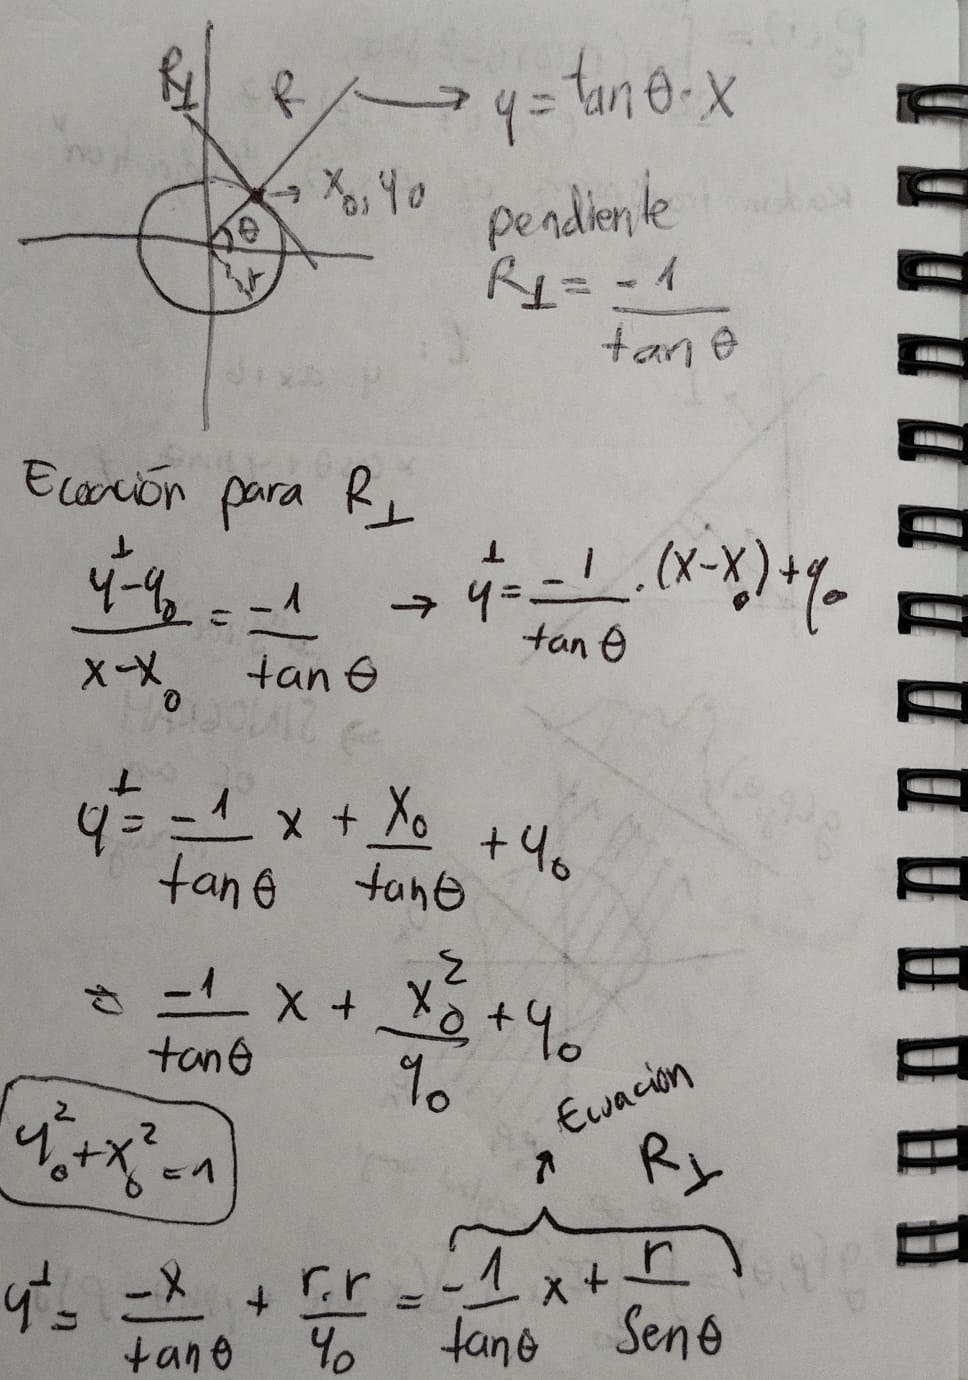 R⊥ R → y = tan θ · x
→ x₀, y₀
θ
r
pendiente
R⊥ = -1 / tan θ
Ecoación para R⊥
(y⊥ - y₀) / (x - x₀) = -1 / tan θ → y⊥ = -1 / tan θ . (x - x₀) + y₀
y⊥ = -1 / tan θ x + x₀ / tan θ + y₀
= -1 / tan θ x + x₀² / y₀ + y₀
y₀² + x₀² = 1
Ecuacion
R⊥
y⊥ = -x / tan θ + r.r / y₀ = -1 / tan θ x + r / Sen θ